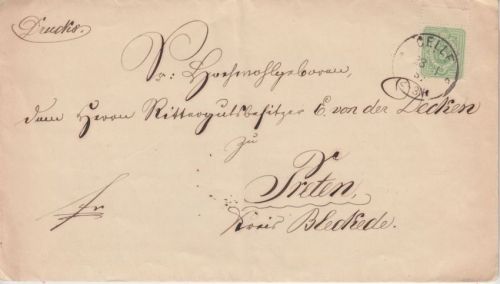 Drucks.
CELLE
Sr: Hochwohlgeboren,
dem Herrn Rittergutsbesitzer E. von der Decken
zu
Preten,
Kreis Bleckede.
fr